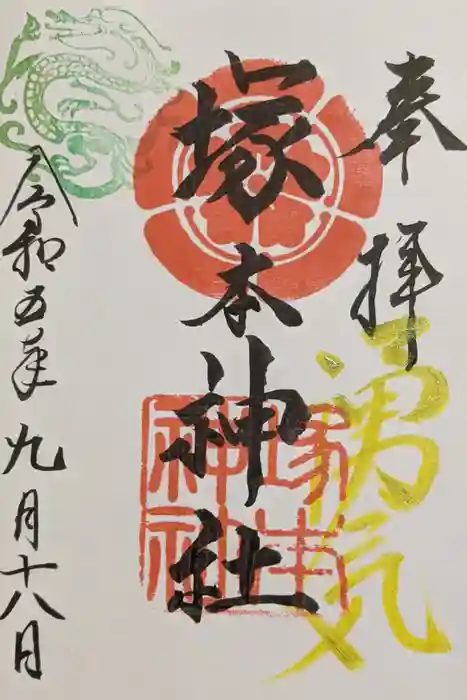 奉拝
湧気
塚本神社
塚本
神社
令和五年九月十八日